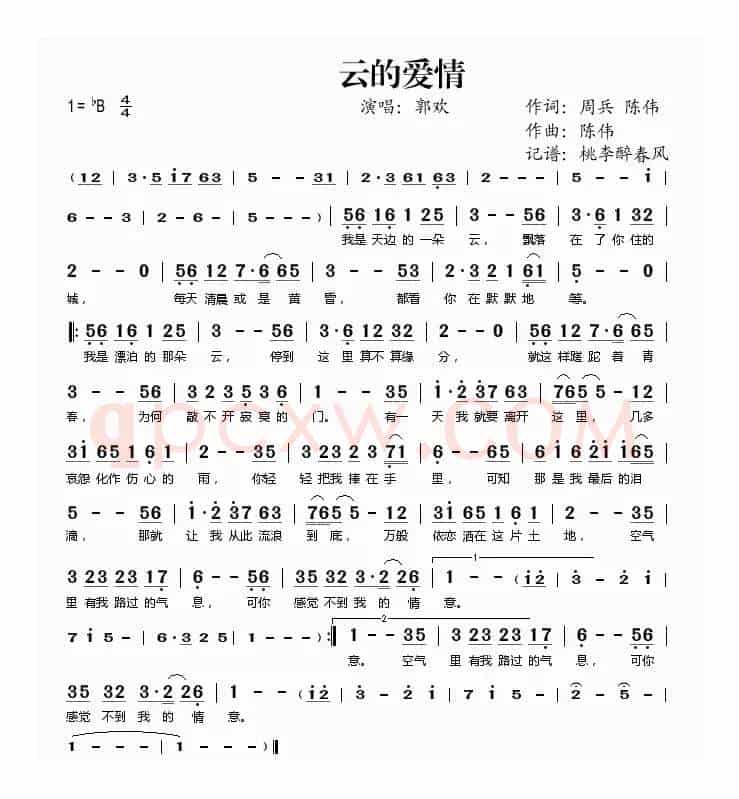 云的爱情
1= ♭B 4/4 演唱：郭欢 作词：周兵 陈伟
作曲：陈伟
记谱：桃李醉春风
(12 | 3·5 i7 63 | 5 - - 31 | 2·3 61 63 | 2 - - - | 5 - - i |
6 - - 3 | 2 - 6 - | 5 - - - ) | 56 16 1 25 | 3 - - 56 | 3·6 1 32 |
我是 天边 的 一朵 云， 飘落 在 了 你 住的
2 - - 0 | 56 12 7·6 65 | 3 - - 53 | 2·3 2 1 61 | 5 - - 0 |
城， 每天 清晨 或 是 黄 昏， 都看 你 在 默 默 地 等。
‖: 56 16 1 25 | 3 - - 56 | 3·6 12 32 | 2 - - 0 | 56 12 7·6 65 |
我是 漂泊 的 那朵 云， 停到 这 里 算不 算缘 分， 就这 样蹉 跎 着 青
3 - - 56 | 3 2 3 5 3 6 | 1 - - 35 | i·2 37 63 | 765 5 - 12 |
春， 为何 敲 不 开 寂 寞 的 门。 有一 天 我 就要 离开 这 里， 几多
3i 65 1 61 | 2 - - 35 | 3 2 1 2 3 71 | 6 - - 35 | 6i 6 2i i65 |
哀怨 化作 伤 心的 雨， 你轻 轻 把 我 捧 在 手 里， 可知 那 是 我 最后 的泪
5 - - 35 | i·2 37 63 | 765 5 - 12 | 3i 65 1 61 | 2 - - 35 |
滴， 那就 让 我 从此 流浪 到 底， 万般 依恋 洒在 这 片 土 地， 空气
3 23 23 17 | 6 - - 56 | 35 32 3·2 26 | 1 - - (i2 | 3 - 2 i |
1
里 有我 路过 的气 息， 可你 感觉 不到 我 的 情 意。
7 i 5 - | 6·3 2 5 | 1 - - - ) :‖ 1 - - 35 | 3 23 23 17 | 6 - - 56 |
2
意。 空气 里 有我 路过 的气 息， 可你
35 32 3·2 26 | 1 - - - | (i2 | 3 - 2 i | 7 i 5 - | 2 - 5 - |
感觉 不到 我 的 情 意。
1 - - - | 1 - - - ) ‖
qpcxw.COM